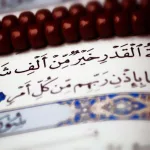 ٱلْقَدْرِ خَيْرٌ مِّنْ أَلْفِ شَ
بِإِذْنِ رَبِّهِم مِّن كُلِّ أَمْرٍ